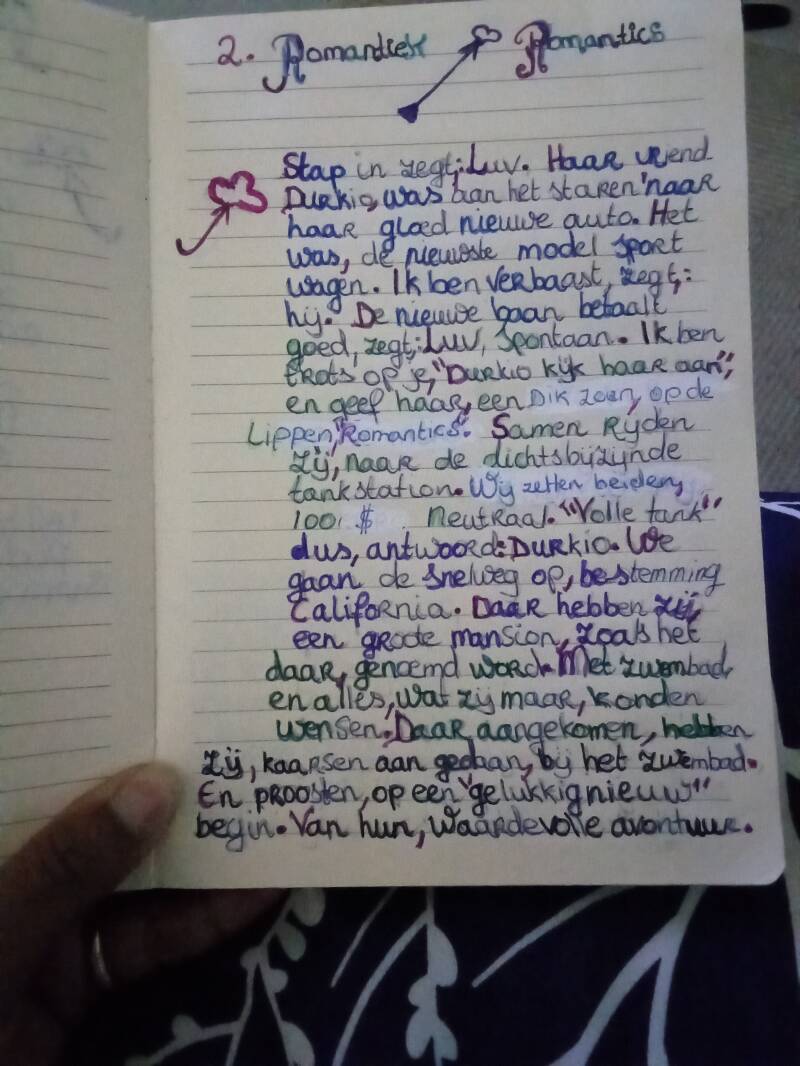 2. Romantiek Romantics
Stap in zegt;: Luv. Haar vriend
Durkio, was aan het staren "naar
haar gloed nieuwe auto. Het
was, de nieuwste model sport
wagen. Ik ben verbaast, zegt,:
hij. De nieuwe baan betaalt
goed, zegt;: Luv, spontaan. Ik ben
trots op je, "Durkio kijk haar aan",
en geef haar, een Dik zoen, op de
Lippen, "Romantics". Samen Ryden
Zij, naar de dichtsbijzijnde
tankstation. Wij zetten beiden,
100, $ Neutraal. "Volle tank"
dus, antwoord: Durkio. We
gaan de snelweg op, bestemming
California. Daar hebben zij,
een groote mansion, zoals het
daar, genoemd word. Met zwembad,
en alles, wat zij maar, konden
wensen. Daar aangekomen, hebben
zij, kaarsen aan gedaan, bij het zwembad.
En proosten, op een "gelukkig nieuw"
begin. Van hun, waardevolle avontuur.